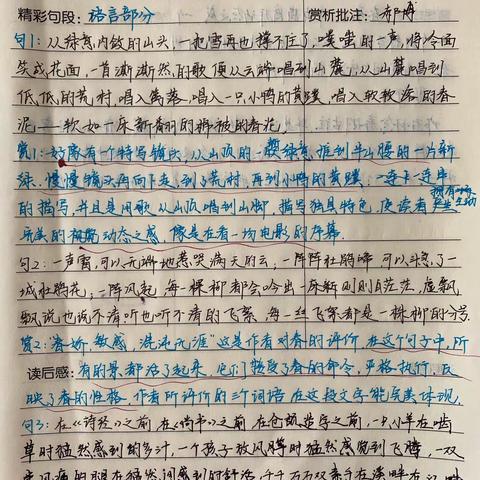 精彩句段：语言部分 赏析批注：
句1：从绿意内敛的山头，一把雪再也撑不住了，噗嗤的一声，将冷面
笑成花面，一首澌澌然的歌便从云端唱到山麓，从山麓唱到
低低的荒村，唱入篱落，唱入一只小鸭的黄蹼，唱入软软溶的春
泥——软如一床新翻的棉被的春泥。
赏1：好像有一个特写镜头，从山顶的一股绿意，推到半山腰的一片新
绿，慢慢镜头再向下走，到了荒村，再到小鸭的黄蹼，一连串
的描写，并且是用歌从山顶唱到山脚，描写独具特色，使读者产生
完美的视觉动态之感，像是在看一场电影的序幕。
句2：一声雷，可以无端地惹哭满天的云，一阵杜鹃啼，可以斗急了一
城杜鹃花；一阵风起，每一棵柳都会吟出一床新则则白茫茫，虚飘
飘说也说不清听也听不清的飞絮，每一丝飞絮都是一株柳的分号。
赏2："春娇、敏感、混沌无涯"这是作者对春的评价，在这句子中，所
读后感：有的景都活了起来，它们接受了春的命令，严格执行，反
映了春的性格，作者所评价的三个词语在这段文字能完美体现。
句3：在《诗经》之前，在《尚书》之前，在仓颉造字之前，一只小羊在啮
草时猛然感到的多汁，一个孩子放风筝时猛然感觉到飞腾，一双
患风痛的腿在猛然间感到的舒活，千千万万双素手在溪畔在江畔